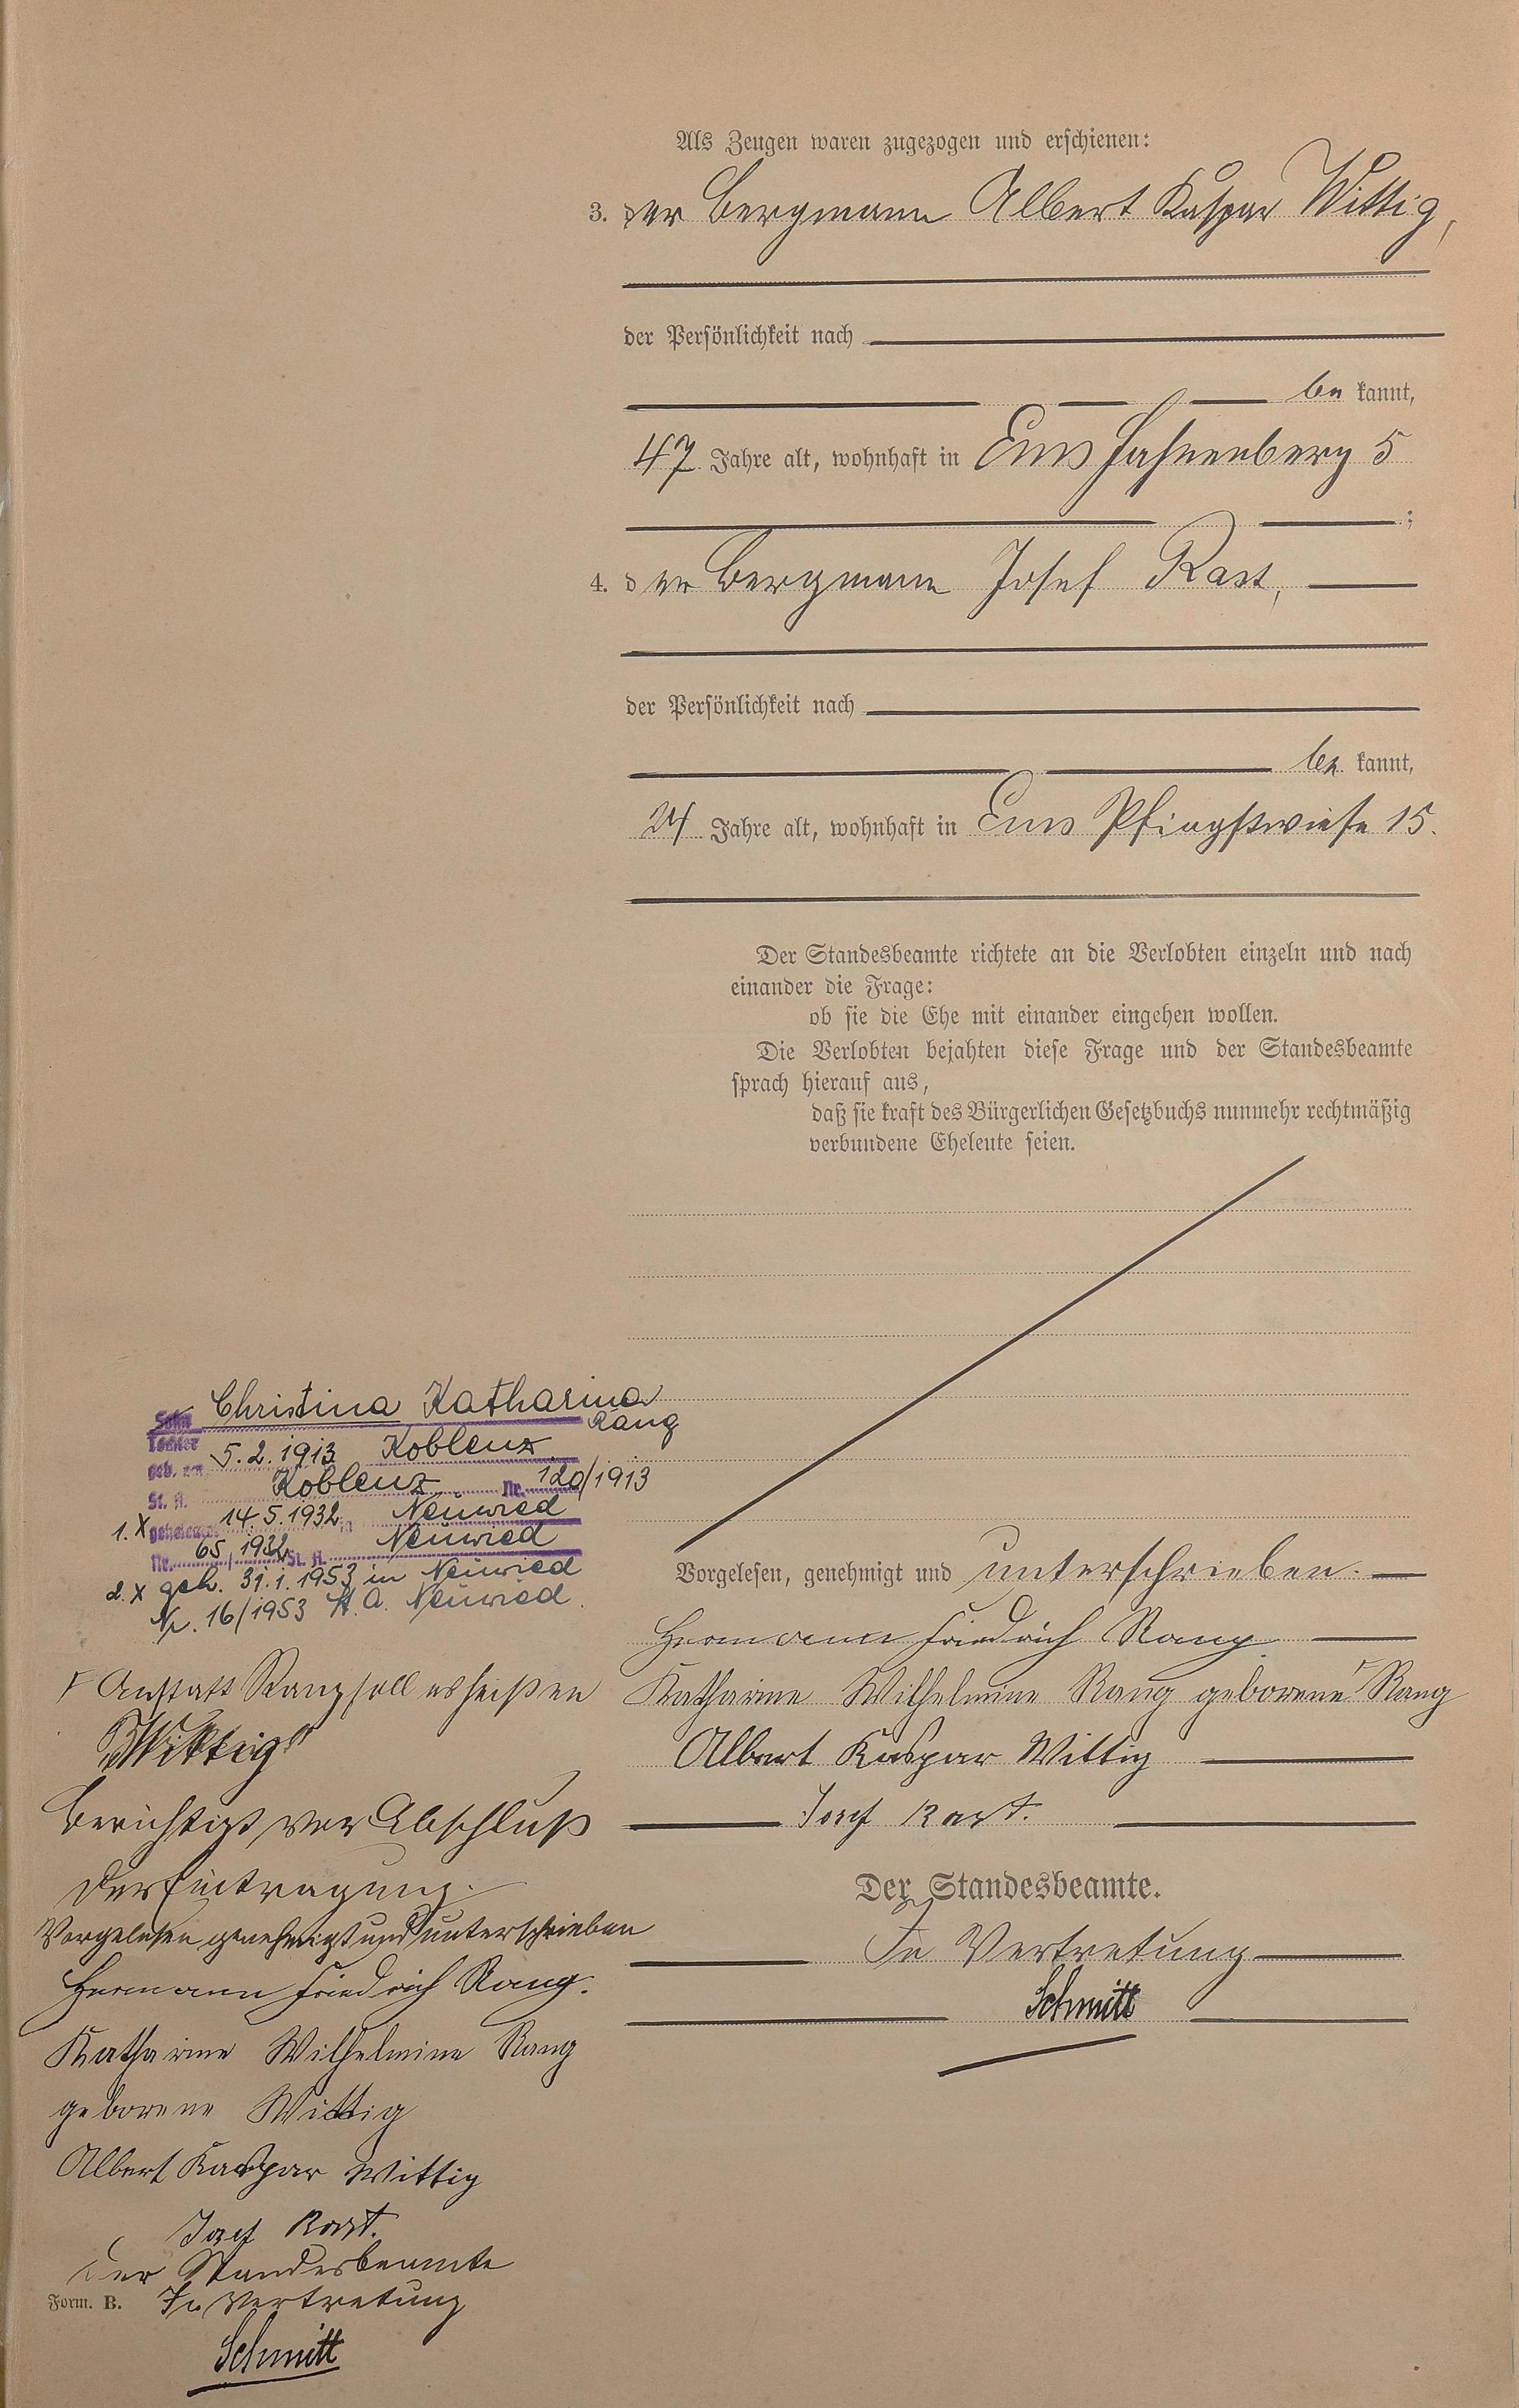 Als Zeugen waren zugezogen und erschienen:
3. der Bergmann Albert Kaspar Wittig,
der Persönlichkeit nach
be kannt,
47 Jahre alt, wohnhaft in Ems Hahnenberg 5
;
4. der Bergmann Josef Rast,
der Persönlichkeit nach
be kannt,
24 Jahre alt, wohnhaft in Ems Pfingstwiese 15.
Der Standesbeamte richtete an die Verlobten einzeln und nach
einander die Frage:
ob sie die Ehe mit einander eingehen wollen.
Die Verlobten bejahten diese Frage und der Standesbeamte
sprach hierauf aus,
daß sie kraft des Bürgerlichen Gesetzbuchs nunmehr rechtmäßig
verbundene Eheleute seien.
Vorgelesen, genehmigt und unterschrieben.
Hermann Friedrich Rang
Katharine Wilhelmine Rang geborene Rang
Albert Kaspar Wittig
Josef Rast.
Der Standesbeamte.
In Vertretung
Schmitt
Sohn Christina Katharina
Tochter Rang
geb. am 5.2.1913 Koblenz
St. A. Koblenz Nr. 120/1913
1. X geheiratet 14.5.1932 in Neuwied
Nr. 65/1932 St. A. Neuwied
2. X geh. 31.1.1953 in Neuwied
Nr. 16/1953 St. A. Neuwied.
Anstatt Rang soll es heißen
"Wittig"
Berichtigt vor Abschluß
der Eintragung.
Vorgelesen genehmigt und unterschrieben
Hermann Friedrich Rang.
Katharine Wilhelmine Rang
geborene Wittig
Albert Kaspar Wittig
Josef Rast.
Der Standesbeamte
Form. B. In Vertretung
Schmitt